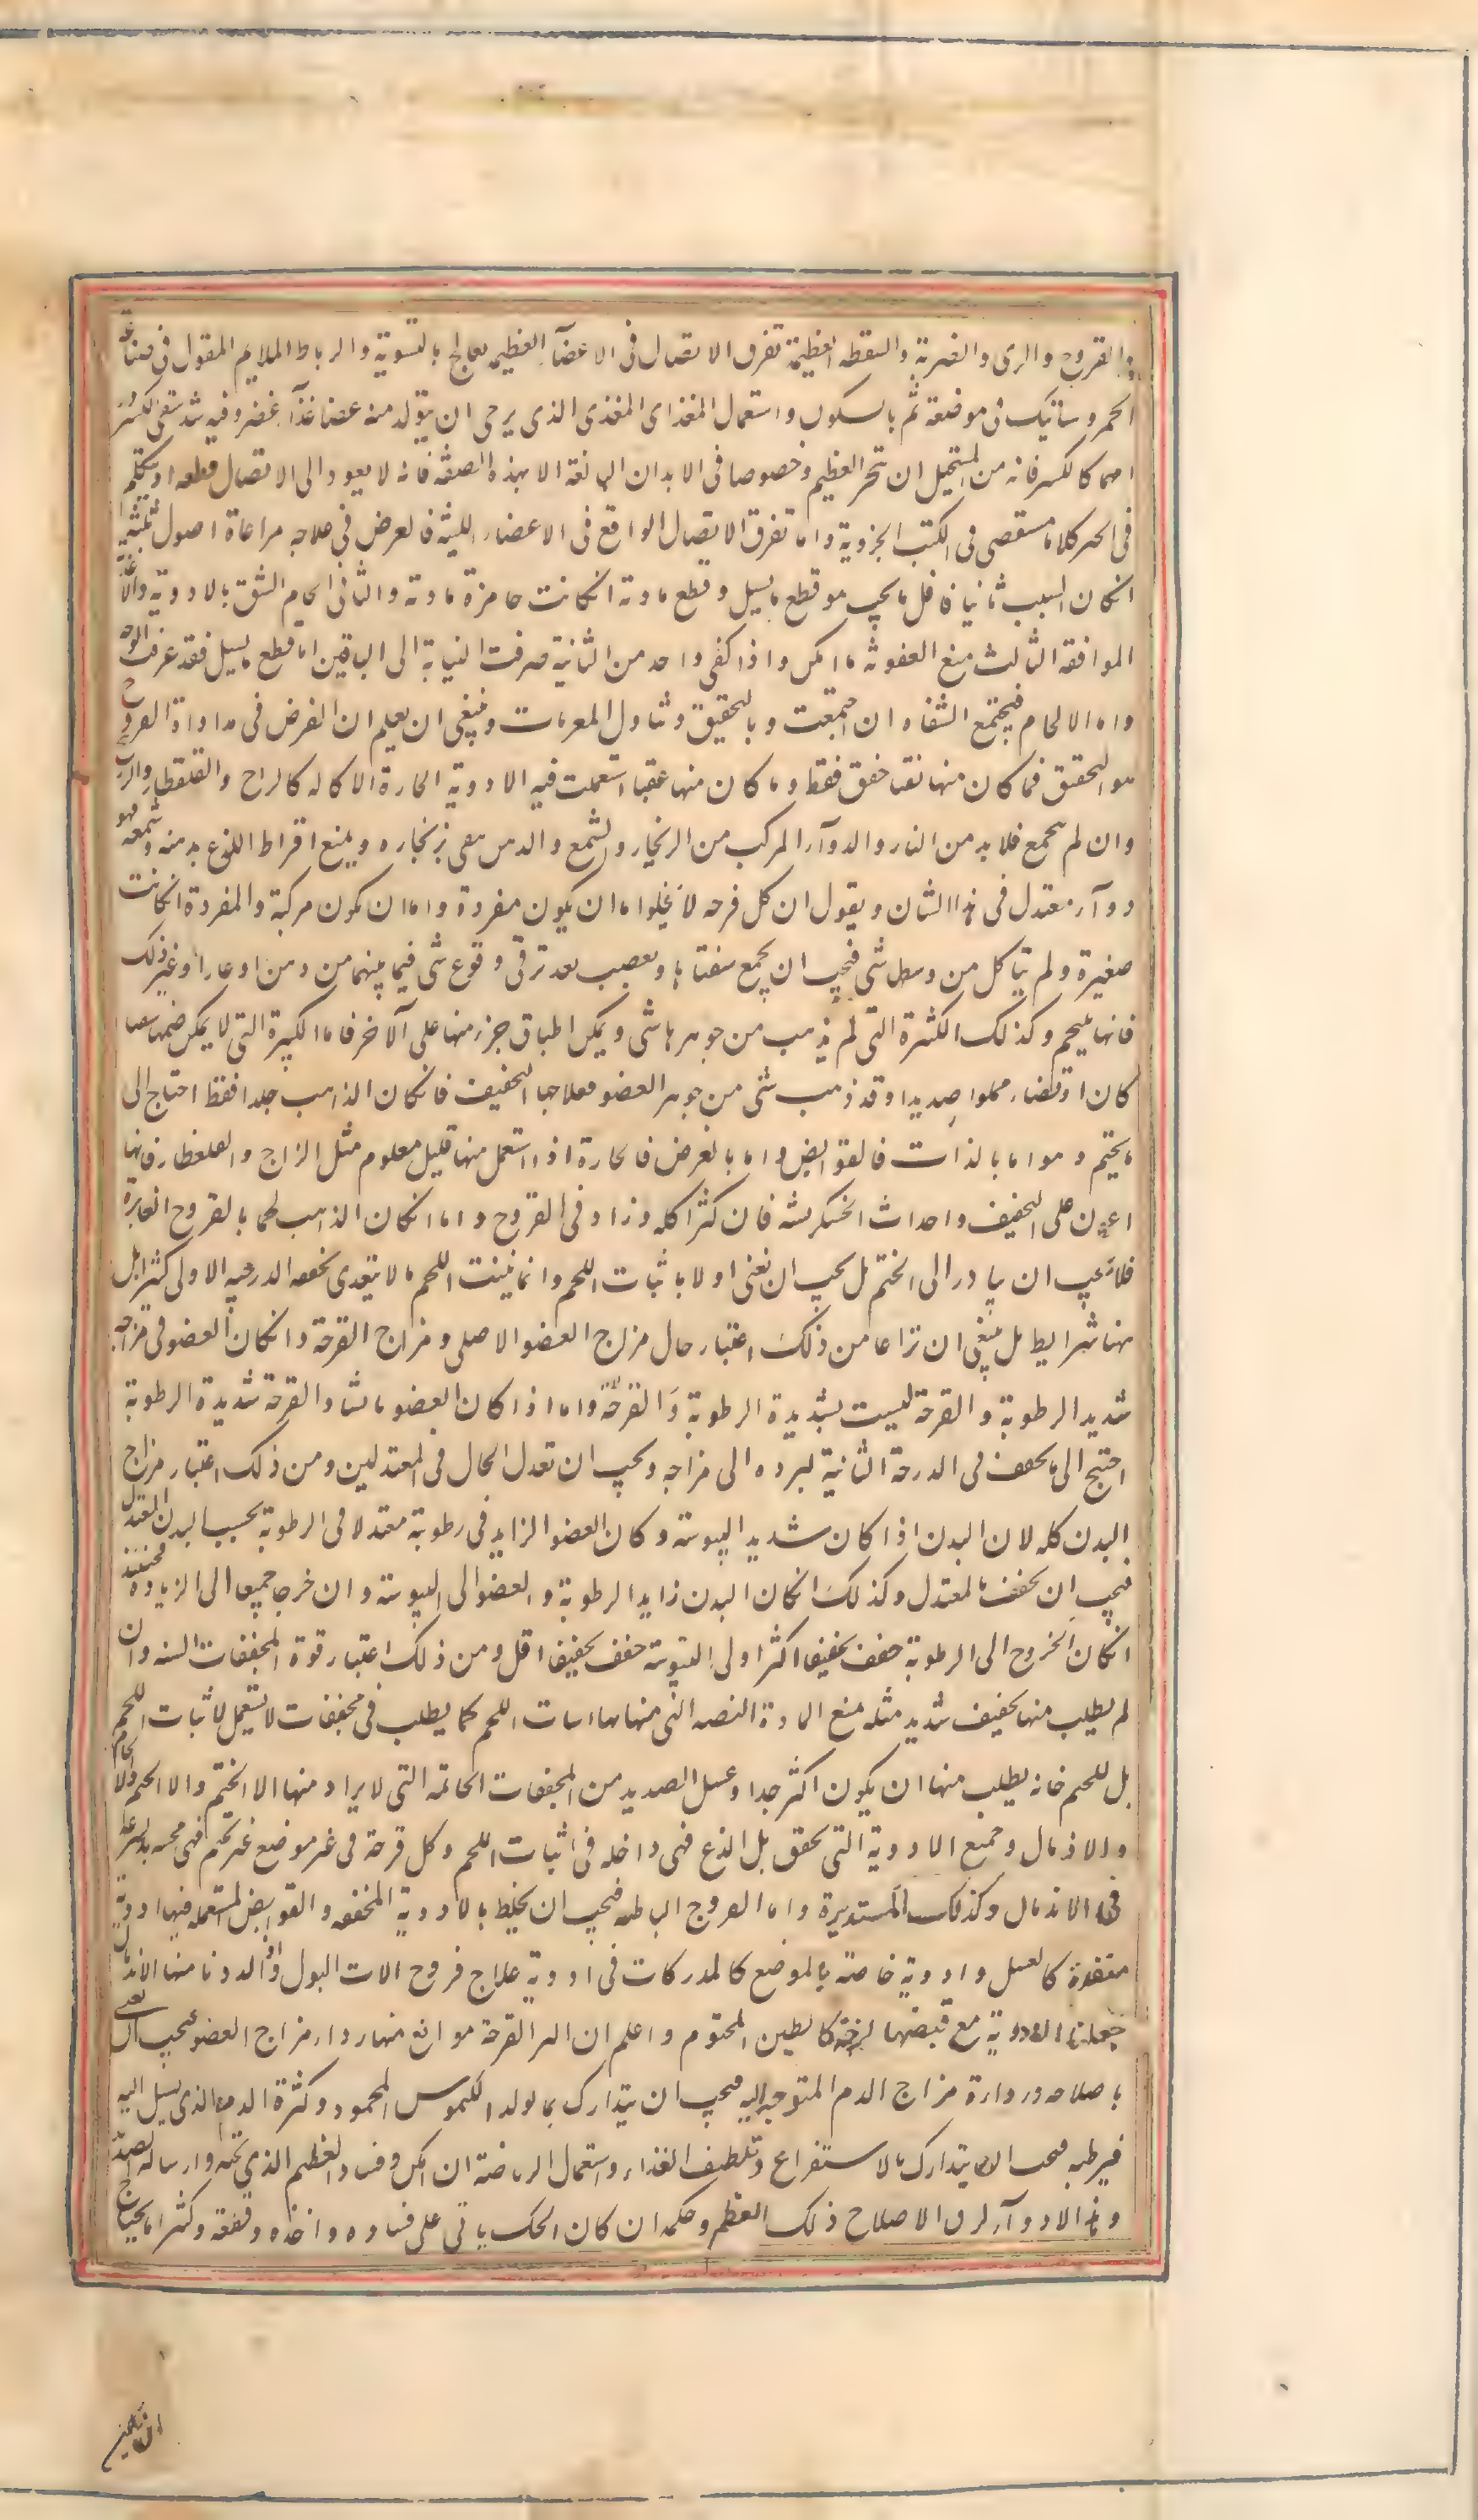 والقروح والوثى والضربة والسقطة العظيمة تفرق الاتصال فى الاعضآء العظيمه يعالج بالتسوية والرباط الملايم المقول فى صناعة
الجبر وساتيك فى موضعه ثم بالسكون واستعمال الغذاى المغذى الذى يرجى ان يتولد منه غذآء غضروفيه شد شفتى الكسر
كالكسر فانه من المستحيل ان تجبر العظيم وخصوصا فى الابدان البالغة الا بهذه الصفة فانه لا يعود الى الاتصال قطعه او سنتكلم
فى الجبر كلاما مستقصى فى الكتب الجزوية واما تفرق الاتصال الواقع فى الاعضاء اللينة فالغرض فى علاجه مراعاة اصول ثلثة
انكان السبب ثابتا فاول ما يجب هو قطع ما يسيل وقطع مادته انكانت حاضرة مادته والثانى الحام الشق بالادوية والاغذية
الموافقه الثالث منع العفونة ما امكن واذا كفى واحد من الثلثة صرفت العناية الى الباقين اما قطع ما يسيل فقد عرفت الوجه
واما الالحام فيجتمع الشفاه ان اجتمعت وبالتجفيف وتناول المغريات وينبغى ان يعلم ان الغرض فى مداواة القروح
هو التجفيف فما كان منها نقيا جفف فقط وما كان منها عفنا استعملت فيه الادوية الحارة الاكاله كالزاج والقلقطار والزرنيخ
وان لم ينجمع فلا بد من النار والدوآء المركب من الزنجار والشمع والدهن ينقى بزنجاره ويمنع افراط اللذع بدهنه وشمعه فهو
دوآء معتدل فى هذا الشان ويقول ان كل قرحه لا يخلوا اما ان يكون مفردة واما ان يكون مركبة والمفردة انكانت
صغيرة ولم يتاكل من وسط شى فيجب ان يجمع شفتاها ويعصب بعد توقى وقوع شى فيما بينهما من دهن او غبار او غير ذلك
فانها يلتحم وكذلك الكثيرة التى لم يذهب من جوهرها شى ويمكن اطباق جزء منها على الآخر فاما الكبيرة التى لا يمكن ضمها شقا
كان او فضاء مملوا صديدا وقد ذهب شى من جوهر العضو فعلاجها التجفيف فانكان الذاهب جلدا فقط احتاج الى
ما يختم وهو اما بالذات فالقوابض واما بالعرض فالحارة اذا استعمل منها قليل معلوم مثل الزاج والقلقطار فانها
اعون على التجفيف واحداث الخشكريشه فان كثر اكله وزاد فى القروح واما انكان الذاهب لحما بالقروح الغايرة
فلا يجب ان يبادر الى الختم بل يجب ان نعنى اولا باثبات اللحم وانما ينبت اللحم ما لا يتعدى تجففه الدرجه الاولى كثيرا بل
هنا شرايط بل ينبغى ان تراعا من ذلك اعتبار حال مزاج العضو الاصلى ومزاج القرحة وانكان العضو فى مزاجه
شديد الرطوبة والقرحة ليست بشديدة الرطوبة والقرحة واما اذا كان العضو يابسا والقرحة شديدة الرطوبة
احتيج الى ما يجفف فى الدرجة الثانية ليرده الى مزاجه ويجب ان تعدل الحال فى المعتدلين ومن ذلك اعتبار مزاج
البدن كله لان البدن اذا كان شديد اليبوسة وكان العضو الزايد فى رطوبة معتدلا فى الرطوبة بحسب البدن المعتدل
فيجب ان يجفف بالمعتدل وكذلك انكان البدن زايد الرطوبة والعضو الى اليبوسة وان خرجا جميعا الى الزيادة
انكان الخروج الى الرطوبة جفف تجفيفا اكثر او الى اليبوسة جفف تجفيفا اقل ومن ذلك اعتبار قوة المجففات وان
لم يطلب منها تجفيف شديد مثله منع المادة اللحم كما يطلب فى مجففات لا يستعمل لاثبات اللحم
بل للختم فانه يطلب منها ان يكون اكثر جدا وغسل الصديد من المجففات الخاتمه التى لا يراد منها الا الختم والالحام
والاندمال وجميع الادوية التى تجفف بلا لذع فهى داخله فى اثبات اللحم وكل قرحة فى غير موضع غير لحيم فهى
فى الاندمال وكذلك المستديرة واما القروح الباطنه فيجب ان يخلط بالادوية المجففه والقوابض المستعمله فيها ادوية
منفذة كالعسل وادوية خاصة بالموضع كالمدرات فى ادوية علاج قروح الات البول واذا اردنا منها الاندمال
جعلنا الادوية مع قبضها لزجة كالطين المختوم واعلم ان لبرء القرحة موانع منها رداءة مزاج العضو فيجب ان تعنى
باصلاحه ورداءة مزاج الدم المتوجه اليه فيجب ان يتدارك بما يولد الكيموس المحمود وكثرة الدم الذى يسيل اليه
فيرطبه فيجب ان يتدارك بالاستفراغ وتلطيف الغذاء واستعمال الرياضة ان امكن وفساد العظم الذى تحته وارساله الصديد
وهذا لا دوآء له الا اصلاح ذلك العظم وحكه ان كان الحك ياتى على فساده واخذه وقطعه وكثيرا ما يحتاج